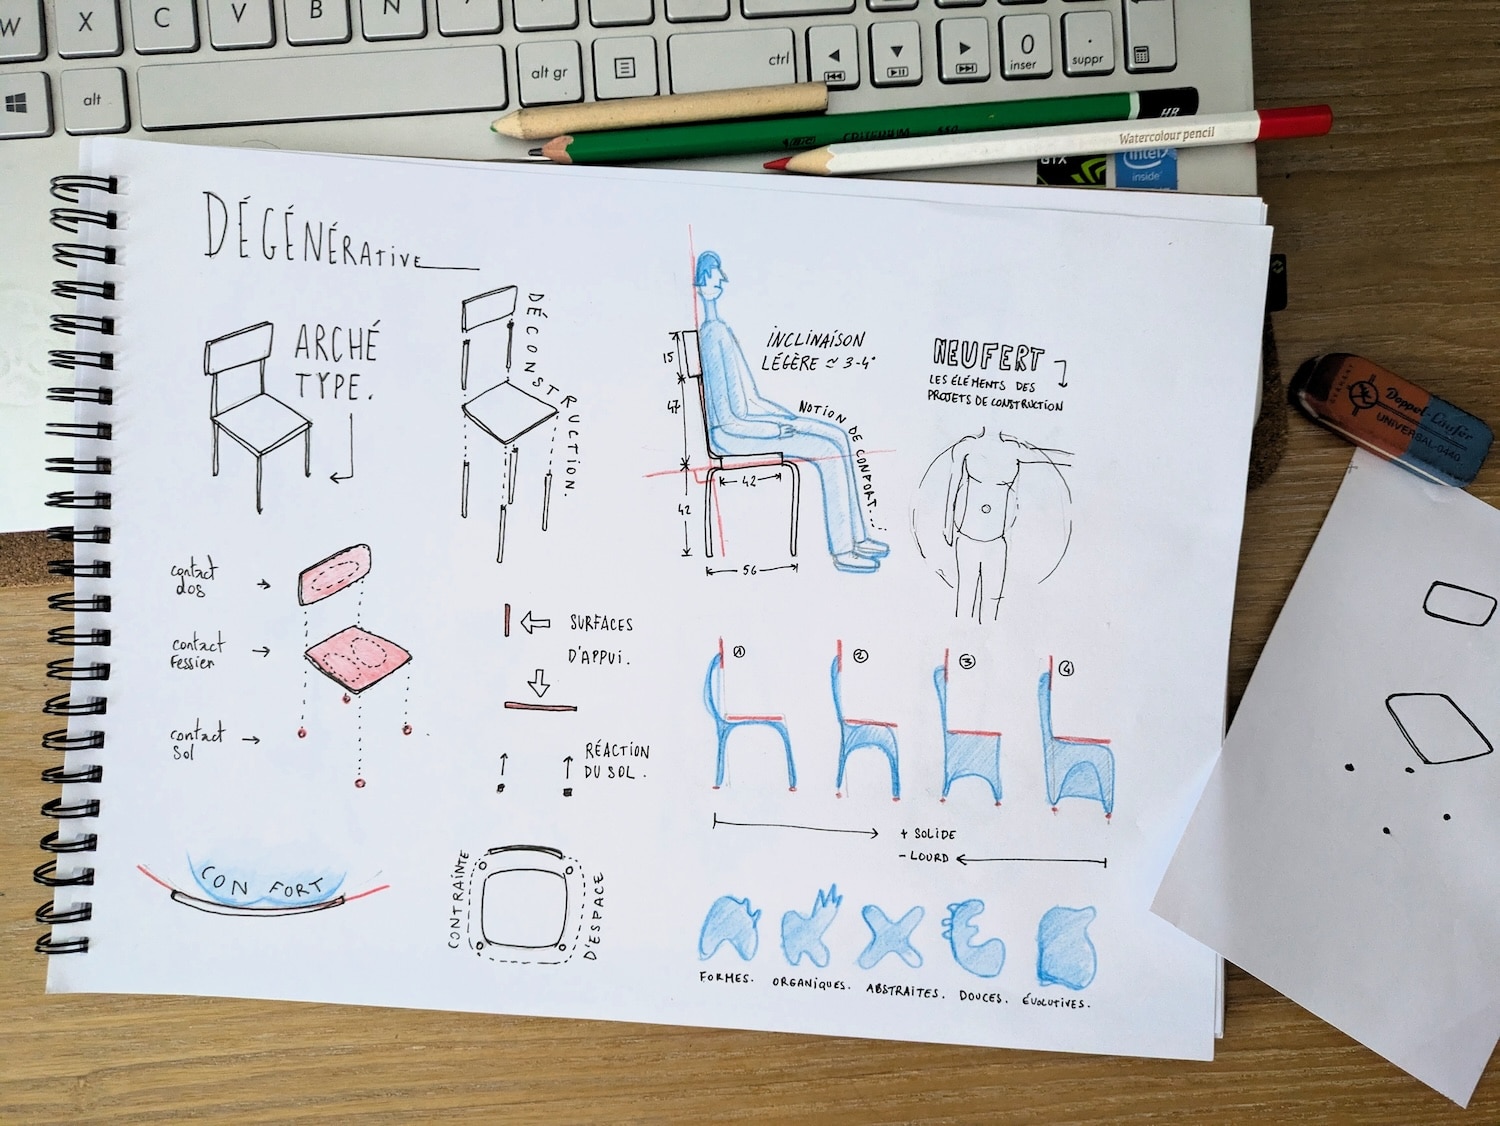 W
X
C
V
B
N
alt
alt gr
ctrl
0
inser
.
suppr
HB
CRITERIUM
Watercolour pencil
GTX
intel
inside
DÉGÉNÉRAtivE
ARCHÉ
TYPE.
DÉCONSTRUCTION.
INCLINAISON
LÉGÈRE ≃ 3-4°
NOTION DE CONFORT...
15
47
42
42
56
NEUFERT
LES ÉLÉMENTS DES
PROJETS DE CONSTRUCTION
Doppel-Läufer
UNIVERSAL-0440
contact
dos
contact
Fessier
contact
Sol
SURFACES
D'APPUI.
RÉACTION
DU SOL.
1
2
3
4
+ SOLIDE
- LOURD
CONFORT
CONTRAINTE
D'ESPACE
FORMES. ORGANIQUES. ABSTRAITES. DOUCES. ÉVOLUTIVES.